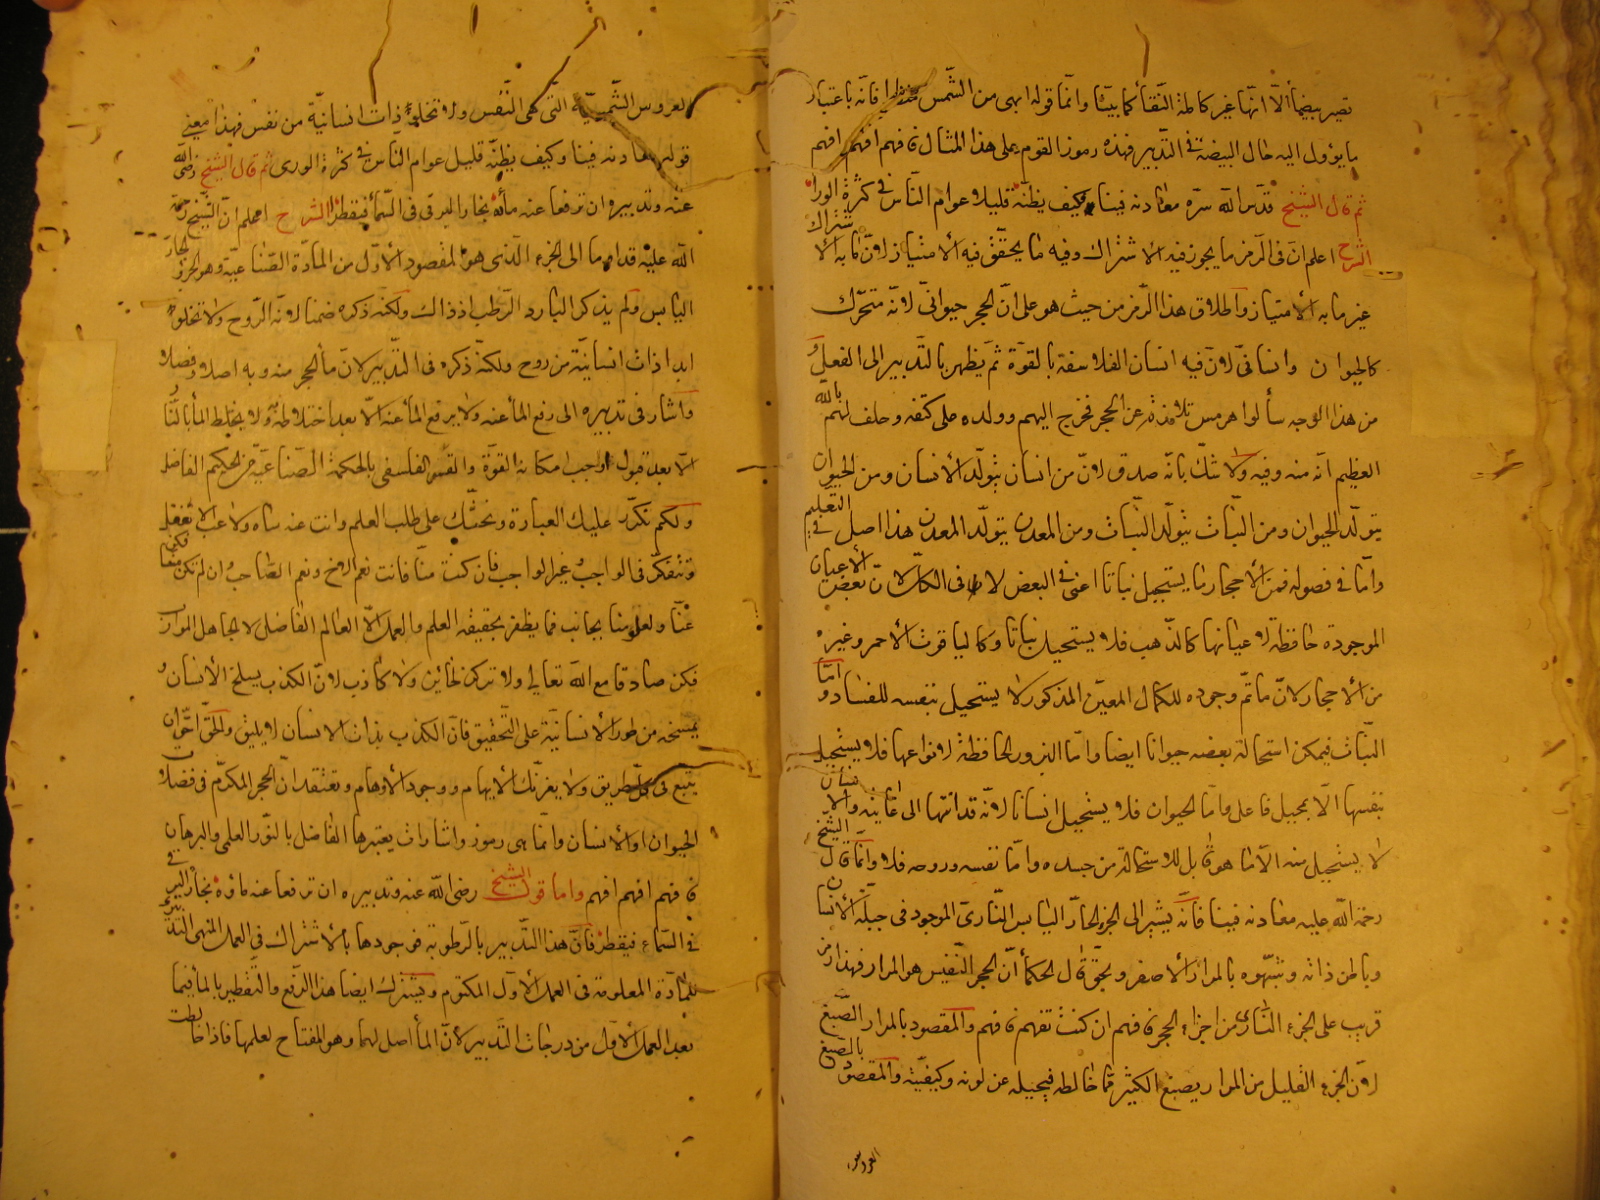 تصير بيضا الا انها غير كاملة النقا كما بيّنا وانما قوله ابهى من الشمس فانه باعتبار
ما يؤول اليه حال البيضة فى التدبير فهذه رموز القوم على هذا المثال فافهم افهم افهم
ثم قال الشيخ قدس الله سره معادنه فينا وكيف يظنه قليلا عوام الناس فى كثرة الورا
الشرح اعلم ان فى الرمز ما يجوز فيه الاشتراك وفيه ما يحقق فيه الامتياز لان ما به الاشتراك
غير ما به الامتياز واطلاق هذا الرمز من حيث هو على ان الحجر حيوانى لانه متحرك
كالحيوان وانسانى لان فيه انسان الفلاسفة بالقوة ثم يظهر بالتدبير الى الفعل و
من هذا الوجه سألوا هرمس تلامذته عن الحجر فخرج اليهم وولده على كتفه وحلف لهم بالله
العظيم انه منه وفيه ولا شك بانه صدق لان من انسان يتولد الانسان ومن الحيوان
يتولد الحيوان ومن النبات يتولد النبات ومن المعدن يتولد المعدن هذا اصل فى التعليم
واما فى فصوله فمن الاحجار ما يستحيل نباتا اعنى فى البعض لا فى الكل لان بعض الاعيان
الموجودة حافظة لاعيانها كالذهب فلا يستحيل نباتا وكالياقوت الاحمر وغيره
من الاحجار لان ما تم وجوده للكمال المعين المذكور لا يستحيل بنفسه للفساد واما
النبات فيمكن استحالة بعضه حيوانا ايضا واما البزور الحافظة لانواعها فلا يستحيل
بنفسها الا بمحيل فاعل واما الحيوان فلا يستحيل انسانا لانه قد انتهى الى غايته والانسان
لا يستحيل منه الا ما هو قابل للاستحالة من جسده واما نفسه وروحه فلا وانما قال الشيخ
رحمة الله عليه معادنه فينا فانه يشير الى الجزء الحار اليابس النارى الموجود فى جبلة الانسان
وباطن ذاته وشبهوه بالمرار الاصفر وبحق قال الحكما ان الحجر النفيس هو المرار فهذا رمز
قريب على الجزء النارى من اجزاء الحجر فافهم ان كنت تفهم فافهم والمقصود بالمرار الصبغ
لان الجزء القليل من المرار يصبغ الكثير مما خالطه فيحيله عن لونه وكيفيته والمقصود بالصبغ
العروس
العروس الشمسية التى هى النفس ولا تخلو ذات انسانية من نفس فهذا معنى
قوله معادنه فينا وكيف يظنه قليل عوام الناس فى كثرة الورى ثم قال الشيخ رضى الله
عنه وتدبيره ان ترفعا عنه ماءه بخار البرقى فى السما فيقطر الشرح اعلم ان الشيخ رحمة
الله عليه قد اوما الى الجزء الذى هو المقصود الاول من المادة الصناعية وهو الجزء الحار
اليابس ولم يذكر البارد الرطب اذ ذاك ولكنه ذكره ضمنا لانه الروح ولا تخلو
ابدا ذات انسانية من روح ولكنه ذكره فى التدبير لان ما الحجر منه وبه اصلا وفصلا
واشار فى تدبيره الى رفع الما عنه ولا يرفع الما عنه الا بعد اختلاطه ولا يختلط الما بالنار
الا بعد قبول اوجب امكانه القوة والقسر الفلسفى بالحكمة الصناعية من الحكيم الفاضل
ولكم نكرر عليك العبارة ونحثك على طلب العلم وانت عنه ساه ولاعب لا تعقل
وتتفكر فى الواجب وغير الواجب فان كنت منا فانت نعم الاخ ونعم الصاحب وان لم تكن منا فكن
عنا ولعلومنا بجانب فما يظفر بحقيقة العلم والعمل الا العالم الفاضل لا الجاهل الموارب
فكن صادقا مع الله تعالى ولا تركن لخائن ولا كاذب لان الكذب يسلخ الانسان و
يمسخه من طور الانسانية على التحقيق فان الكذب بذات الانسان لا يليق والحق احق ان
يتبع فى كل طريق ولا يغرنك الايهام ووجود الاوهام وتعتقد ان الحجر المكرم فى فضلات
الحيوان او الانسان وانما هى رموز واشارات يعتبرها الفاضل بالنور العلمى والبرهان
فافهم افهم افهم واما قول الشيخ رضى الله عنه وتدبيره ان ترفعا عنه ماءه بخار البرقى
فى السماء فيقطر فان هذا التدبير بالرطوبة موجودها بالاشتراك فى العمل المنهى التدبير
للمادة المعلومة فى العمل الاول المكتوم ويشترك ايضا هذا الرفع والتقطير بالما فيما
بعد العمل الاول من درجات التدبير لان الما اصل لها وهو المفتاح لعلمها فاذا خالطت